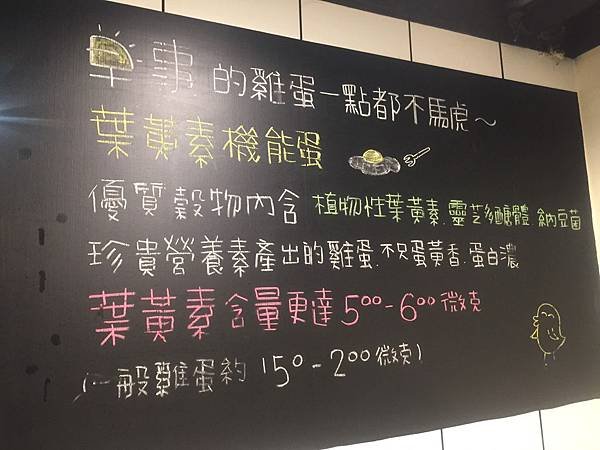 早事的雞蛋一點都不馬虎~
葉黃素機能蛋
優質穀物內含 植物性葉黃素.靈芝多醣體.納豆菌
珍貴營養素產出的雞蛋.不只蛋黃香.蛋白濃
葉黃素含量更達500-600微克
(一般雞蛋約150-200微克)